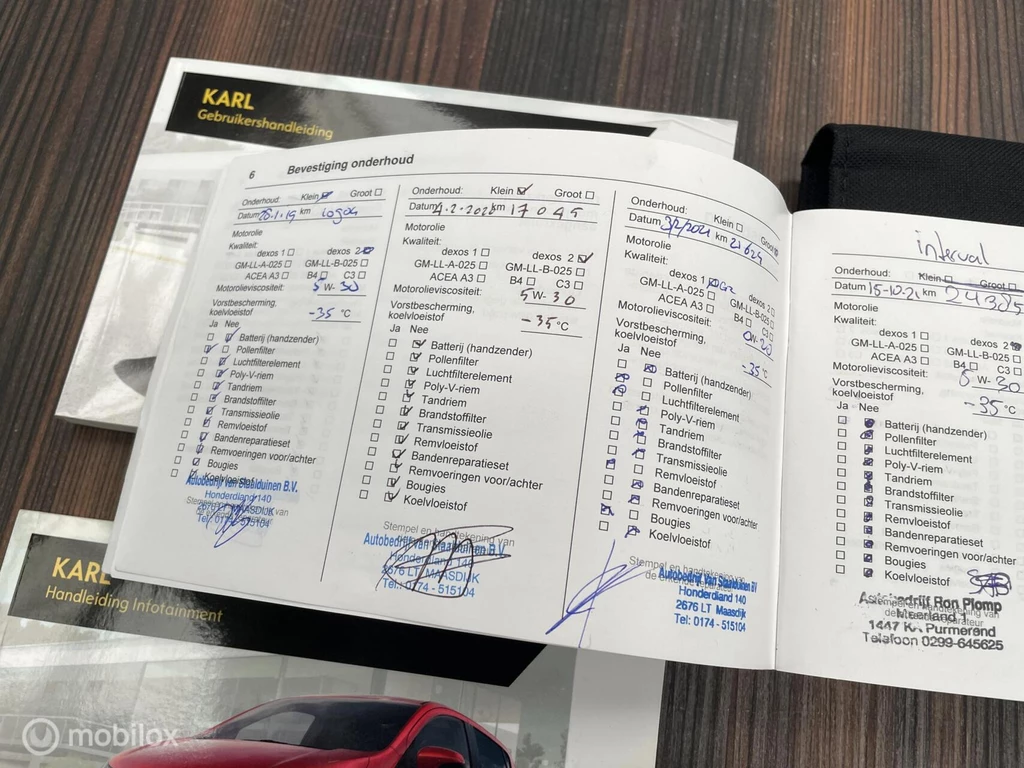 KARL
Gebruikershandleiding
6 Bevestiging onderhoud
Onderhoud: Klein Groot
Datum km
Motorolie
Kwaliteit:
dexos 1 dexos 2
GM-LL-A-025 GM-LL-B-025
ACEA A3 B4 C3
Motorolieviscositeit: 5 W-30
Vorstbescherming,
koelvloeistof -35 °C
Ja Nee
Batterij (handzender)
Pollenfilter
Luchtfilterelement
Poly-V-riem
Tandriem
Brandstoffilter
Transmissieolie
Remvloeistof
Bandenreparatieset
Remvoeringen voor/achter
Bougies
Koelvloeistof
Autobedrijf van Staalduinen B.V.
Honderdland 140
2676 LT MAASDIJK
Tel.: 0174 - 515104
Onderhoud: Klein Groot
Datum 4.2-2020 km 17045
Motorolie
Kwaliteit:
dexos 1 dexos 2
GM-LL-A-025 GM-LL-B-025
ACEA A3 B4 C3
Motorolieviscositeit: 5W-30
Vorstbescherming,
koelvloeistof -35 °C
Ja Nee
Batterij (handzender)
Pollenfilter
Luchtfilterelement
Poly-V-riem
Tandriem
Brandstoffilter
Transmissieolie
Remvloeistof
Bandenreparatieset
Remvoeringen voor/achter
Bougies
Koelvloeistof
Stempel en handtekening van
Autobedrijf van Staalduinen B.V.
Honderdland 140
2676 LT MAASDIJK
Tel.: 0174 - 515104
Onderhoud: Klein Groot
Datum km 21624
Motorolie
Kwaliteit:
dexos 1 dexos 2
GM-LL-A-025 GM-LL-B-025
ACEA A3 B4 C3
Motorolieviscositeit: 0W-20
Vorstbescherming,
koelvloeistof -35°C
Ja Nee
Batterij (handzender)
Pollenfilter
Luchtfilterelement
Poly-V-riem
Tandriem
Brandstoffilter
Transmissieolie
Remvloeistof
Bandenreparatieset
Remvoeringen voor/achter
Bougies
Koelvloeistof
Autobedrijf Van Staalduinen BV
Honderdland 140
2676 LT Maasdijk
Tel: 0174 - 515104
interval
Onderhoud: Klein Groot
Datum 15-10-21 km 24385
Motorolie
Kwaliteit:
dexos 1 dexos 2
GM-LL-A-025 GM-LL-B-025
ACEA A3 B4 C3
Motorolieviscositeit: 5 W-30
Vorstbescherming,
koelvloeistof -35°C
Ja Nee
Batterij (handzender)
Pollenfilter
Luchtfilterelement
Poly-V-riem
Tandriem
Brandstoffilter
Transmissieolie
Remvloeistof
Bandenreparatieset
Remvoeringen voor/achter
Bougies
Koelvloeistof
Autobedrijf Ron Plomp
Meerland 1
1447 Purmerend
Telefoon 0299-645625
KARL
Handleiding Infotainment
mobilox